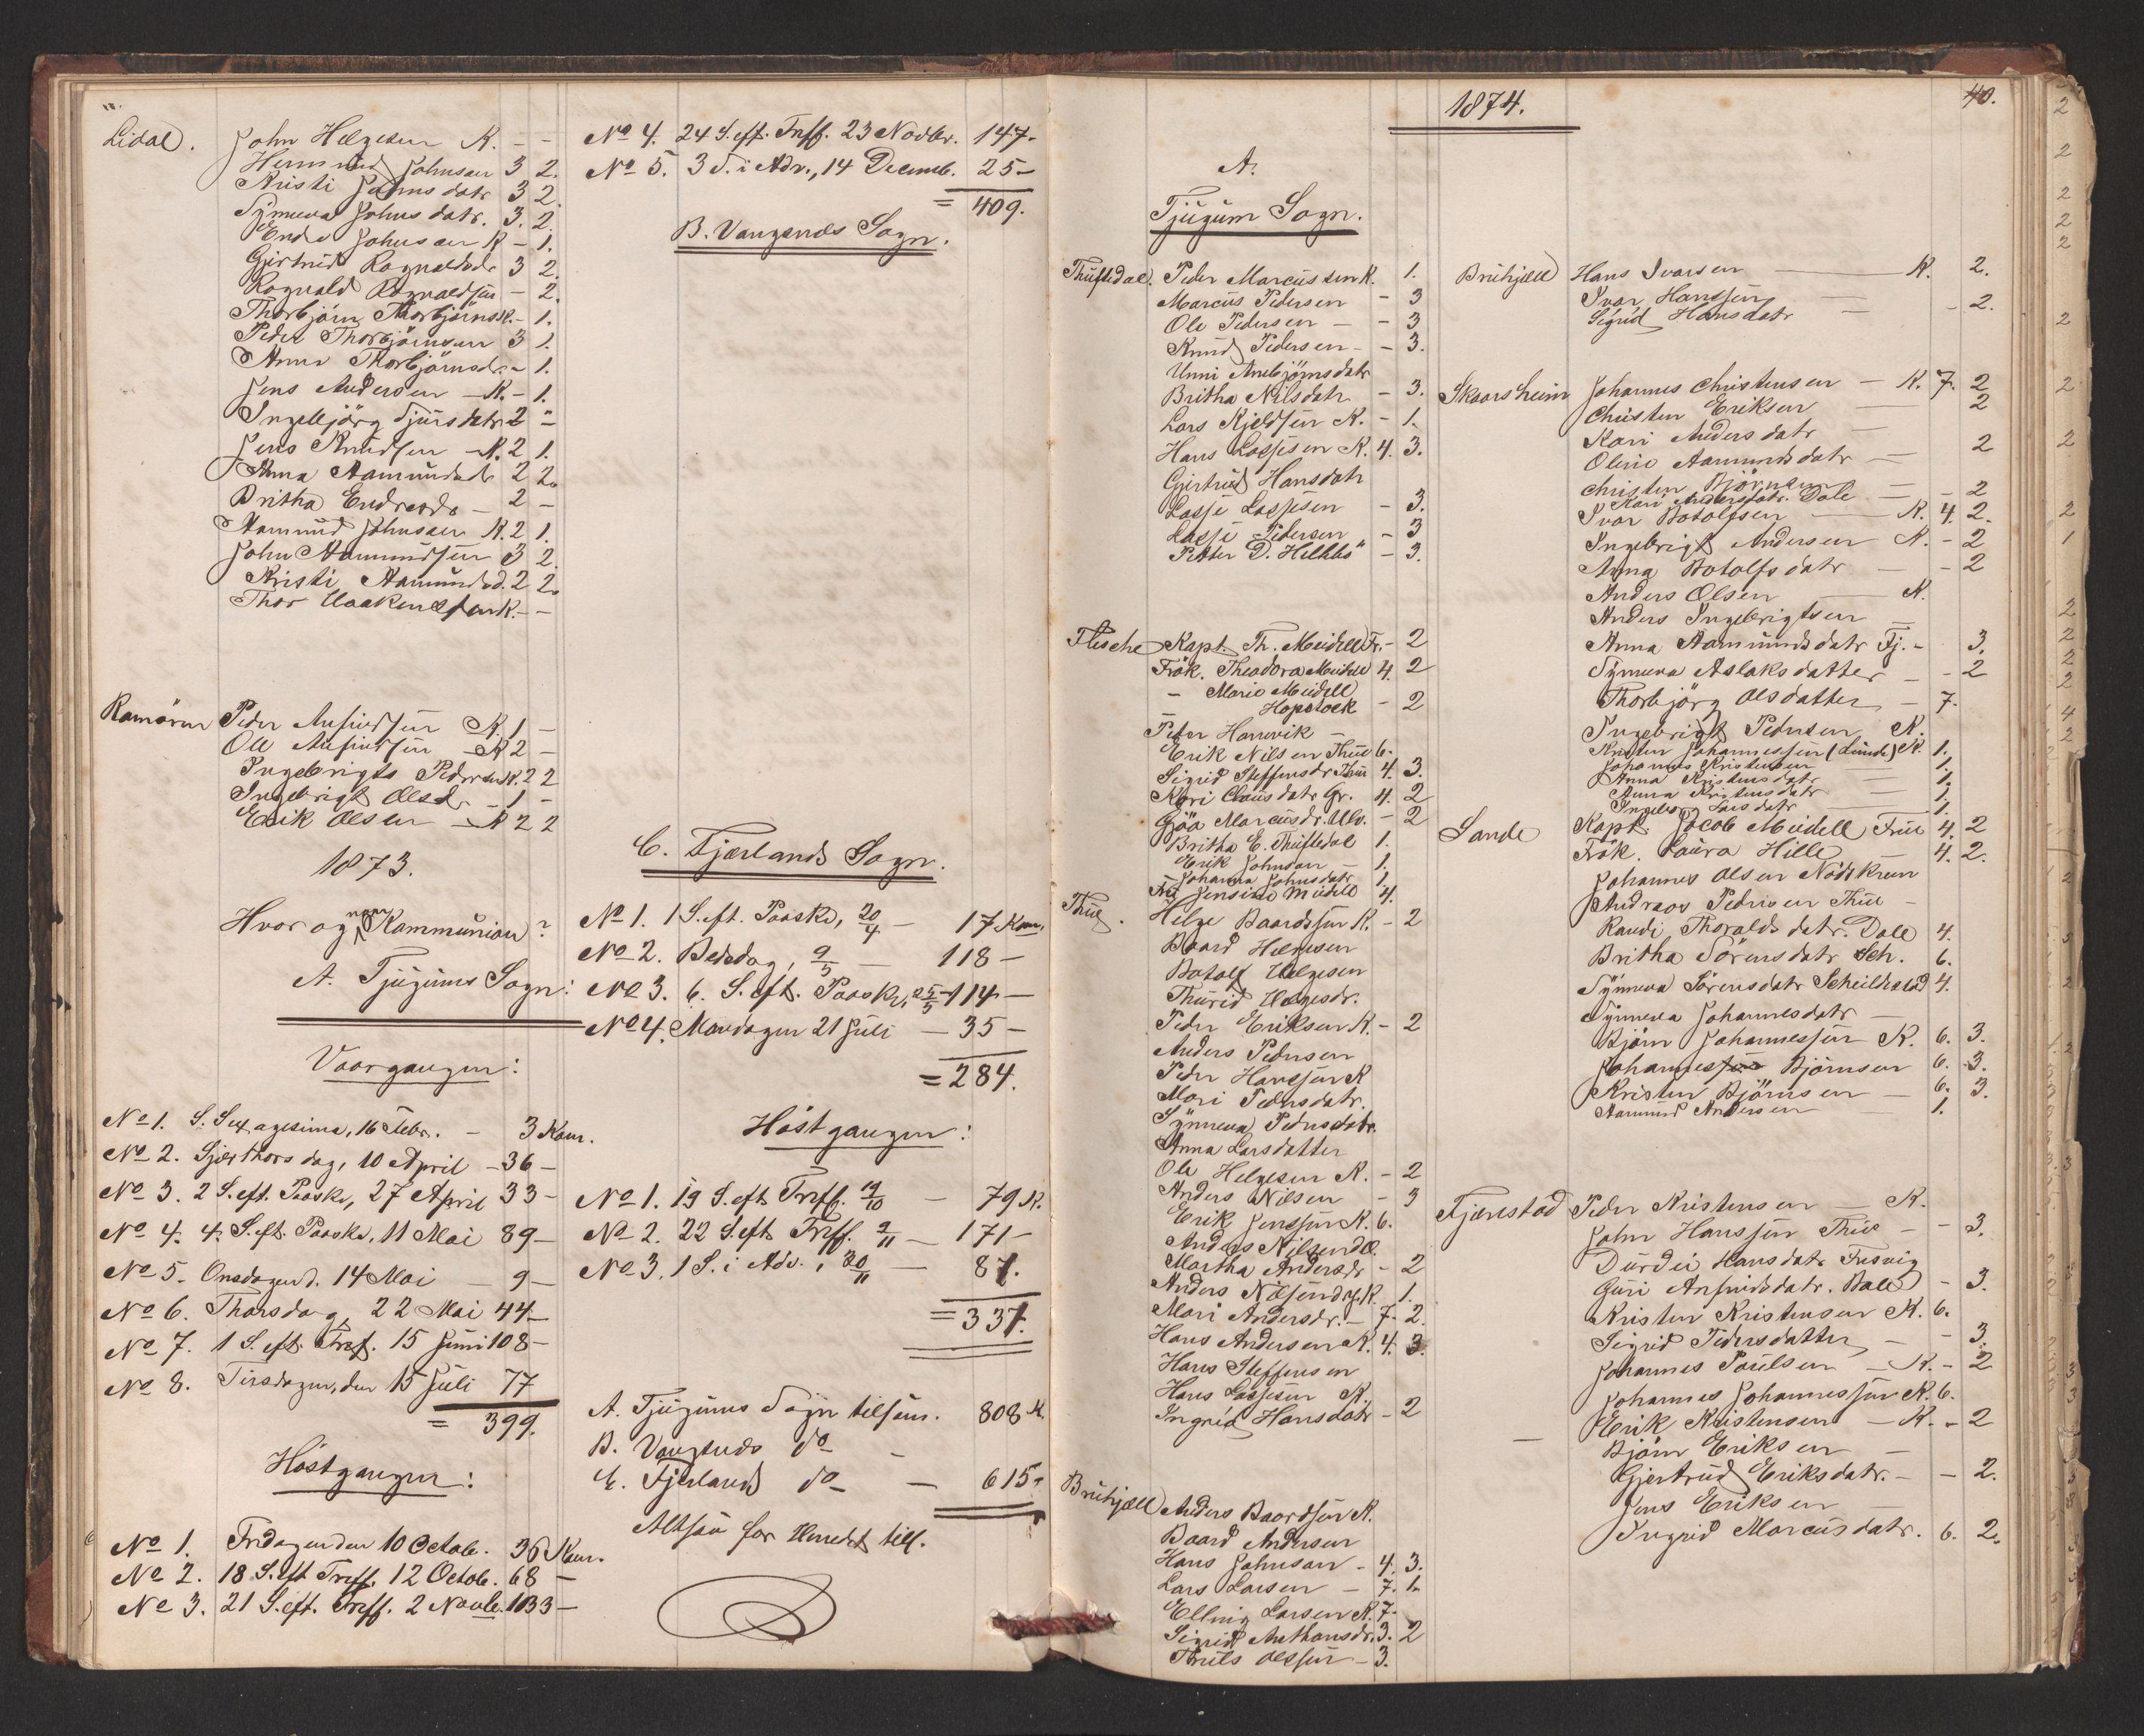 Lidal. John Helgesen K. - -
Hermund Johnsen 3 2.
Kristi Johnsdatr 3 2.
Synneva Johnsdatr. 3. 2.
Endre Johnsen K - 1.
Gjertrud Rognaldsdr 3 2.
Rognald Rognaldsen - 2.
Thorbjörn Thorbjörnsen K. - 1.
Peder Thorbjörnsen 3 1.
Anna Thorbjörnsdr. - 1.
Jens Andersen K. - 1.
Ingebjörg Sjursdatr 2 -
Jens Knudsen K. 2 1.
Anna Aamundsdr 2 2.
Britha Endresdr - 2 -
Aamund Johnsen K. 2 1.
John Aamundsen 3 2.
Kristi Aamundsd. 2 2.
Thor Haakensen K. - -
Ramörn Peder Anfindsen K. 1 -
Ole Anfindsen K 2 -
Ingebrigt Pedersen K. 2 2
Ingebrigt Olsdr. - 1 -
Erik Olsen K 2 2
1873.
Hvor og naar Kommunion?
A. Tjugums Sogn:
Vaargangen:
No 1. S. Sexagesima, 16 Febr. - 3 Kom.
No 2. Skjærthorsdag, 10 April - 36 -
No 3. 2 S. eft. Paaske, 27 April 33 -
No 4. 4. S. eft. Paaske, 11 Mai 89 -
No 5. Onsdagen d. 14 Mai - 9 -
No 6. Thorsdag, 22 Mai 44 -
No 7. 1 S. eft. Tref. 15 Juni 108 -
No 8. Tirsdagen, den 15 Juli 77
= 399.
Höstgangen:
No 1. Fredagen den 10 Octob. 36 Kom.
No 2. 18 S. eft Treff. 12 Octob. 68 -
No 3. 21 S. eft. Treff. 2 Novbr. 133 -
No 4. 24 S. eft. Treff. 23 Novbr. 147 -
No 5. 3 S. i Adv., 14 Decemb. 25 -
= 409.
B. Vangsnes Sogn.
C. Fjærlands Sogn.
No 1. 1 S. eft. Paaske, 20/4 - 17 Kom.
No 2. Bededag, 9/5 - 118 -
No 3. 6. S. eft. Paaske, 25/5 - 114 -
No 4. Mandagen 21 Juli - 35 -
= 284.
Höstgangen:
No 1. 19 S. eft. Treff. 19/10 - 79 K.
No 2. 22 S. eft. Treff. 9/11 - 171 -
No 3. 1 S. i Adv., 30/11 - 87.
= 337.
A. Tjugums Sogn tilsam. 808 K.
B. Vangsnes do -
C. Fjærlands do - 615 -
Altsaa for Herredet till.
1874. 40.
A.
Tjugum Sogn.
Thuftedal. Peder Marcussen K. 1.
Marcus Pedersen - 3
Ole Pedersen - - 3
Knud Pedersen - - 3.
Unni Arnbjörnsdatr
Britha Nilsdatr - 3.
Lars Kjeldsen K. - 1.
Hans Lassesen K. 4. 3.
Gjertrud Hansdatr
Lasse Lassesen - 3.
Lasse Pedersen - 3
Petter D. - 3.
Flesche Kapt. Th. Meidell Fr. - 2
Frök. Theodora Meidell 4. 2
- Marie Meidell
Hopstock - 2
Peder Hamrvik -
Erik Nilsen Thue 6. -
Sigrid Steffensdr Thue 4. 3.
Kari Clausdatr Gr. 4. 2
Gjöa Marcusdr. Ulv. - 2
Britha E. Thuftedal 1.
Erik Johnsen - 1.
Johanna Johnsdatr 1.
Fru Jensine Meidell 4.
Thue. Helge Baardsen K. - 2
Baard Helgesen
Botolf Helgesen
Thurid Helgesdr.
Peder Eriksen K. - 2
Anders Pedersen
Peder Hansen K
Mari Pedersdatr.
Synneva Pedersdatr.
Anna Larsdatter
Ole Helgesen K. - 2
Anders Nilsen - 3
Erik Jensen K. 6.
Anders Nilsen d. Æ.
Martha Andersdr - 2
Anders Nilsen d. y. K. 1.
Mari Andersdr. - 7. 2.
Hans Andersen K. 4. 3.
Hans Steffensen
Hans Lassesen K.
Ingrid Hansdatr - 2
Bruhjell Anders Baardsen K.
Baard Andersen
Hans Johnsen - 4. 3.
Lars Larsen - 7. 1.
Elling Larsen K. 7.
Sigrid Anthonsdr. 3. 2
Truls Olsen - 3.
Bruhjell Hans Ivarsen K. 2.
Ivar Hansen - - 2.
Sigrid Hansdatr -
Skaarsheim Johannes Christensen - K. 7. 2
Christen Eriksen - 2
Kari Andersdatr -
Oline Aamundsdatr - 2
Christen Björnsen
Kari Andersdatr. Dale - - 2
Ivar Botolfsen K. 4. 2.
Ingebrigt Andersen K. - 2
Anna Botolfsdatr - - 2
Anders Olsen K.
Anders Ingebrigtsen -
Anna Aamundsdatr Fj. - 3.
Synneva Aslaksdatter - - 2
Thorbjörg Olsdatter - 7.
Ingebrigt Pedersen K.
Kristen Johannessen (Lunde) K. 1.
Johannes Kristensen 1.
Anna Kristensdatr - 1.
Anna Kristensdatr - 1.
Ingeborg Larsdatr 1.
Sande Kapt. Jacob Meidell Frue 4. 2
Frök. Laura Hille 4. 2.
Johannes Olsen Nödskrun
Andreas Pedersen Thue -
Randi Thoraldsdatr. Dale 4.
Britha Sörensdatr Sch. 6.
Synneva Sörensdatr 4.
Synneva Johannesdatr -
Björn Johannessen K. 6. 3.
Johannes Björnsen 6. 3.
Kristen Björnsen - 6. 3.
Aamund Andersen 1.
Fjærestad Peder Kristensen K.
John Hansen Thue - - 3.
Durdei Hansdatr Fresvig
Guri Anfindsdatr. Dale - 3.
Kristen Kristensen K. 6.
Sigrid Pedersdatter - - 3.
Johannes Paulsen K. - 2
Johannes Johannessen K. 6.
Erik Kristensen - K. - 2
Björn Eriksen -
Gjertrud Eriksdatr. - - 2.
Jens Eriksen -
Ingrid Marcusdatr. 6. 2.